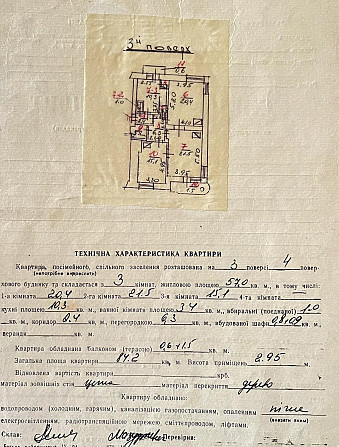 3й поверх
11
0.6
2.15
3.95
7-2
1.0
7-1
10,3
6
20,4
5.20
4.10
7
21.5
5.80
15,1
3.95
3.20
10
1.5
ТЕХНІЧНА ХАРАКТЕРИСТИКА КВАРТИРИ
Квартира, посімейного, спільного заселення розташована на 3 поверсі 4 повер-
(непотрібне викреслити)
хового будинку та складається з 3 кімнат, житловою площею 57,0 кв. м, в тому числі:
1-а кімната 20,4 2-га кімната 21.5 3-я кімната 15.1 4-та кімната
кухні площею 10,3 кв. м, ванної кімнати площею 3,4 кв. м, вбиральні (поєднаної) 1.0
кв. м., коридор 8.4 кв. м., перегородкою 9,3 кв. м., вбудованої шафи 0,8+0,2 кв. м.,
веранди кв. м.
Квартира обладнана балконом (терасою) 0,6+1.5 кв. м.
Загальна площа квартири 84.2 кв. м, Висота приміщень 2.95 м.
Відновлена вартість квартири крб.
матеріал зовнішніх стін цегла матеріал перекриття дерево
Квартиру обладнано:
водопроводом (холодним, гарячим), каналізацією газопостачанням, опаленням пічне
електроосвітленням, радіотрансляційною мережею, сміттєпроводом, ліфтами. (вказати яким)
Склав: Перевірив: